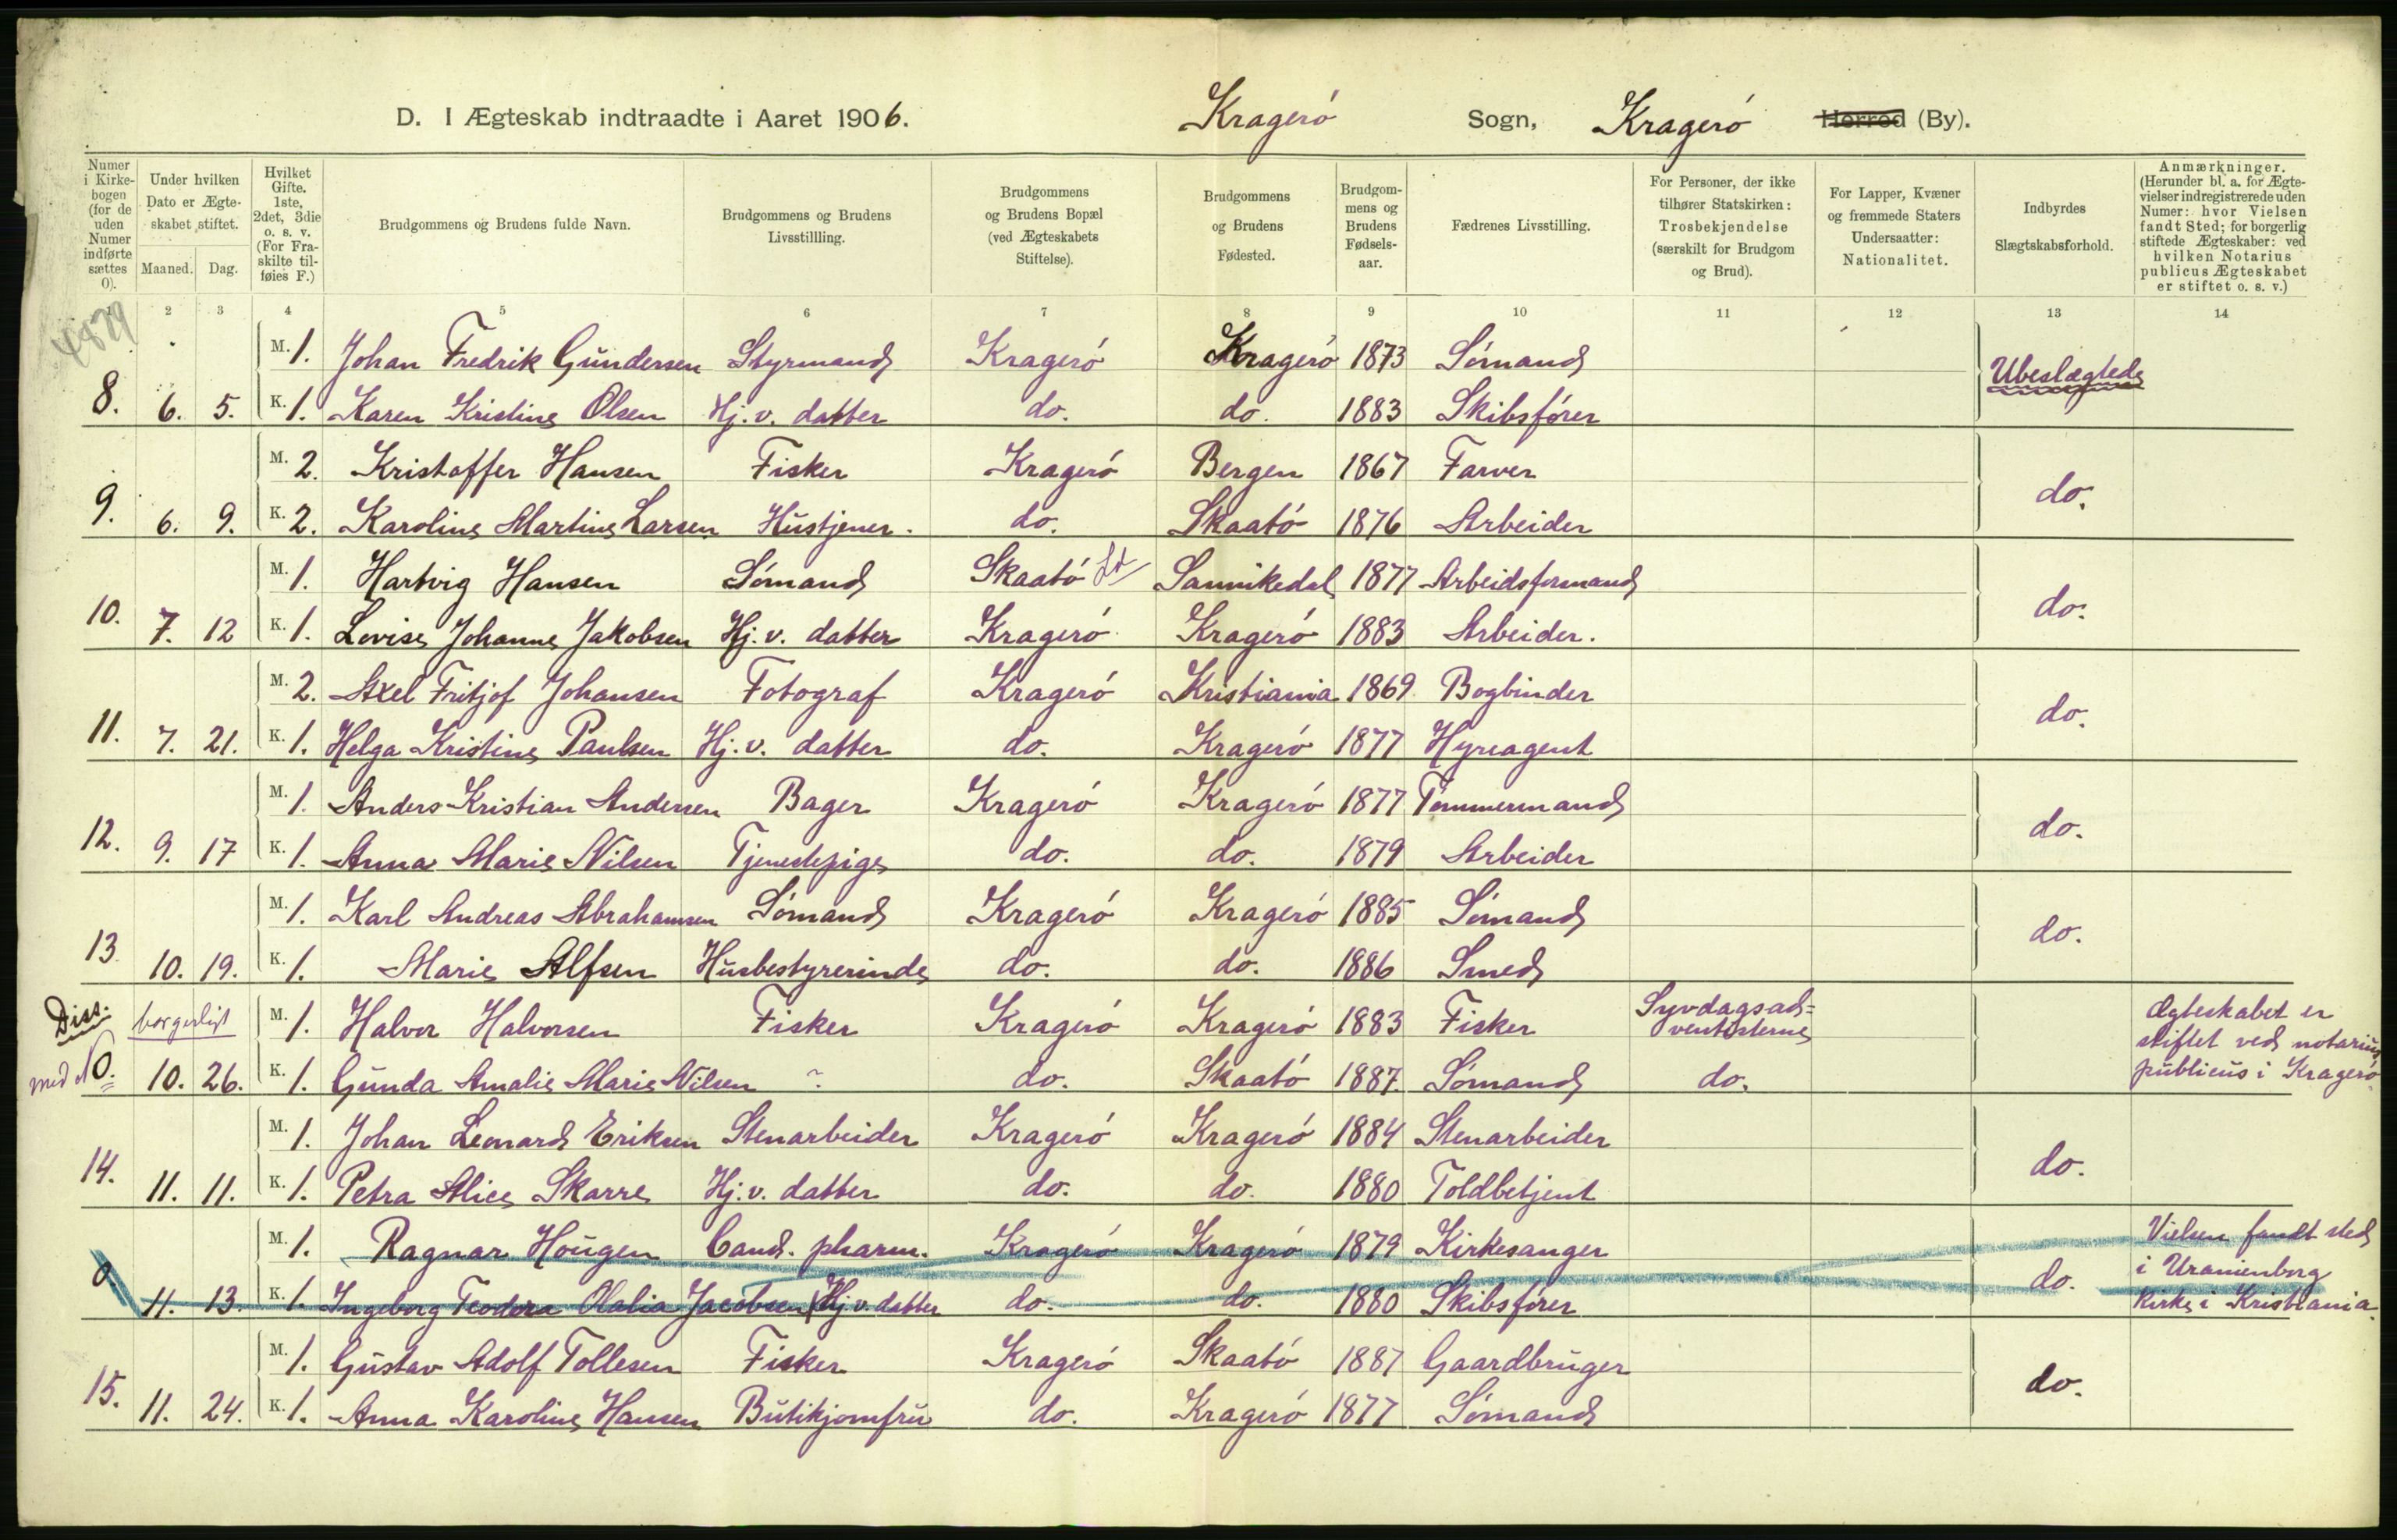 D. I Ægteskab indtraadte i Aaret 1906. Kragerö Sogn, Kragerö Herred (By).
Numer i Kirkebogen (for de uden Numer indførte sættes 0).
Under hvilken Dato er Ægteskabet stiftet.
Maaned. Dag.
Hvilket Gifte. 1ste, 2det, 3die o. s. v. (For Fraskilte tilføies F.)
Brudgommens og Brudens fulde Navn.
Brudgommens og Brudens Livsstillling.
Brudgommens og Brudens Bopæl (ved Ægteskabets Stiftelse).
Brudgommens og Brudens Fødested.
Brudgommens og Brudens Fødselsaar.
Fædrenes Livsstilling.
For Personer, der ikke tilhører Statskirken: Trosbekjendelse (særskilt for Brudgom og Brud).
For Lapper, Kvæner og fremmede Staters Undersaatter: Nationalitet.
Indbyrdes Slægtskabsforhold.
Anmærkninger. (Herunder bl. a. for Ægtevielser indregistrerede uden Numer: hvor Vielsen fandt Sted; for borgerlig stiftede Ægteskaber: ved hvilken Notarius publicus Ægteskabet er stiftet o. s. v.)
2 3 4 5 6 7 8 9 10 11 12 13 14
4879
M. 1. Johan Fredrik Gundersen Styrmand Kragerö Kragerö 1873 Sömand Ubeslægtede
8. 6. 5. K. 1. Karen Kristine Olsen Hj. v. datter do. do. 1883 Skibsförer
M. 2. Kristoffer Hansen Fisker Kragerö Bergen 1867 Farver do.
9. 6. 9. K. 2. Karoline Martine Larsen Hustjener. do. Skaatö 1876 Arbeider
M. 1. Hartvig Hansen Sömand Skaatö Sannikedal 1877 Arbeidsformand do.
10. 7. 12 K. 1. Lovise Johanne Jakobsen Hj. v. datter Kragerö Kragerö 1883 Arbeider.
M. 2. Axel Fritjof Johansen Fotograf Kragerö Kristiania 1869 Bogbinder do.
11. 7. 21. K. 1. Helga Kristine Paulsen Hj. v. datter do. Kragerö 1877 Hyreagent
M. 1. Anders Kristian Andersen Bager Kragerö Kragerö 1877 Tömmermand do.
12. 9. 17 K. 1. Anna Marie Nilsen Tjenestepige do. do. 1879 Arbeider
M. 1. Karl Andreas Abrahamsen Sömand Kragerö Kragerö 1885 Sömand do.
13 10. 19. K. 1. Marie Alfsen Husbestyrerinde do. do. 1886 Smed
Diss. borgerligt M. 1. Halvor Halvorsen Fisker Kragerö Kragerö 1883 Fisker Syvdagsad=ventisterne Ægteskabet er stiftet ved notarius publicus i Kragerö.
med N 0. 10. 26. K. 1. Gunda Amalie Marie Nilsen ? do. Skaatö 1887. Sömand do.
M. 1. Johan Leonard Eriksen Stenarbeider Kragerö Kragerö 1884 Stenarbeider do.
14. 11. 11. K. 1. Petra Alice Skarre Hj. v. datter do. do. 1880 Toldbetjent
M. 1. Ragnar Hougen Cand. pharm. Kragerö Kragerö 1879 Kirkesanger do. Vielsen fandt sted i Uranienborg Kirke i Kristiania.
0 11. 13. K. 1. Ingeborg Teodora Olalia Jacobsen Hj. v. datter do. do. 1880 Skibsförer
M. 1. Gustav Adolf Tollesen Fisker Kragerö Skaatö 1887 Gaardbruger do.
15. 11. 24. K. 1. Anna Karoline Hansen Butikjomfru do. Kragerö 1877 Sömand